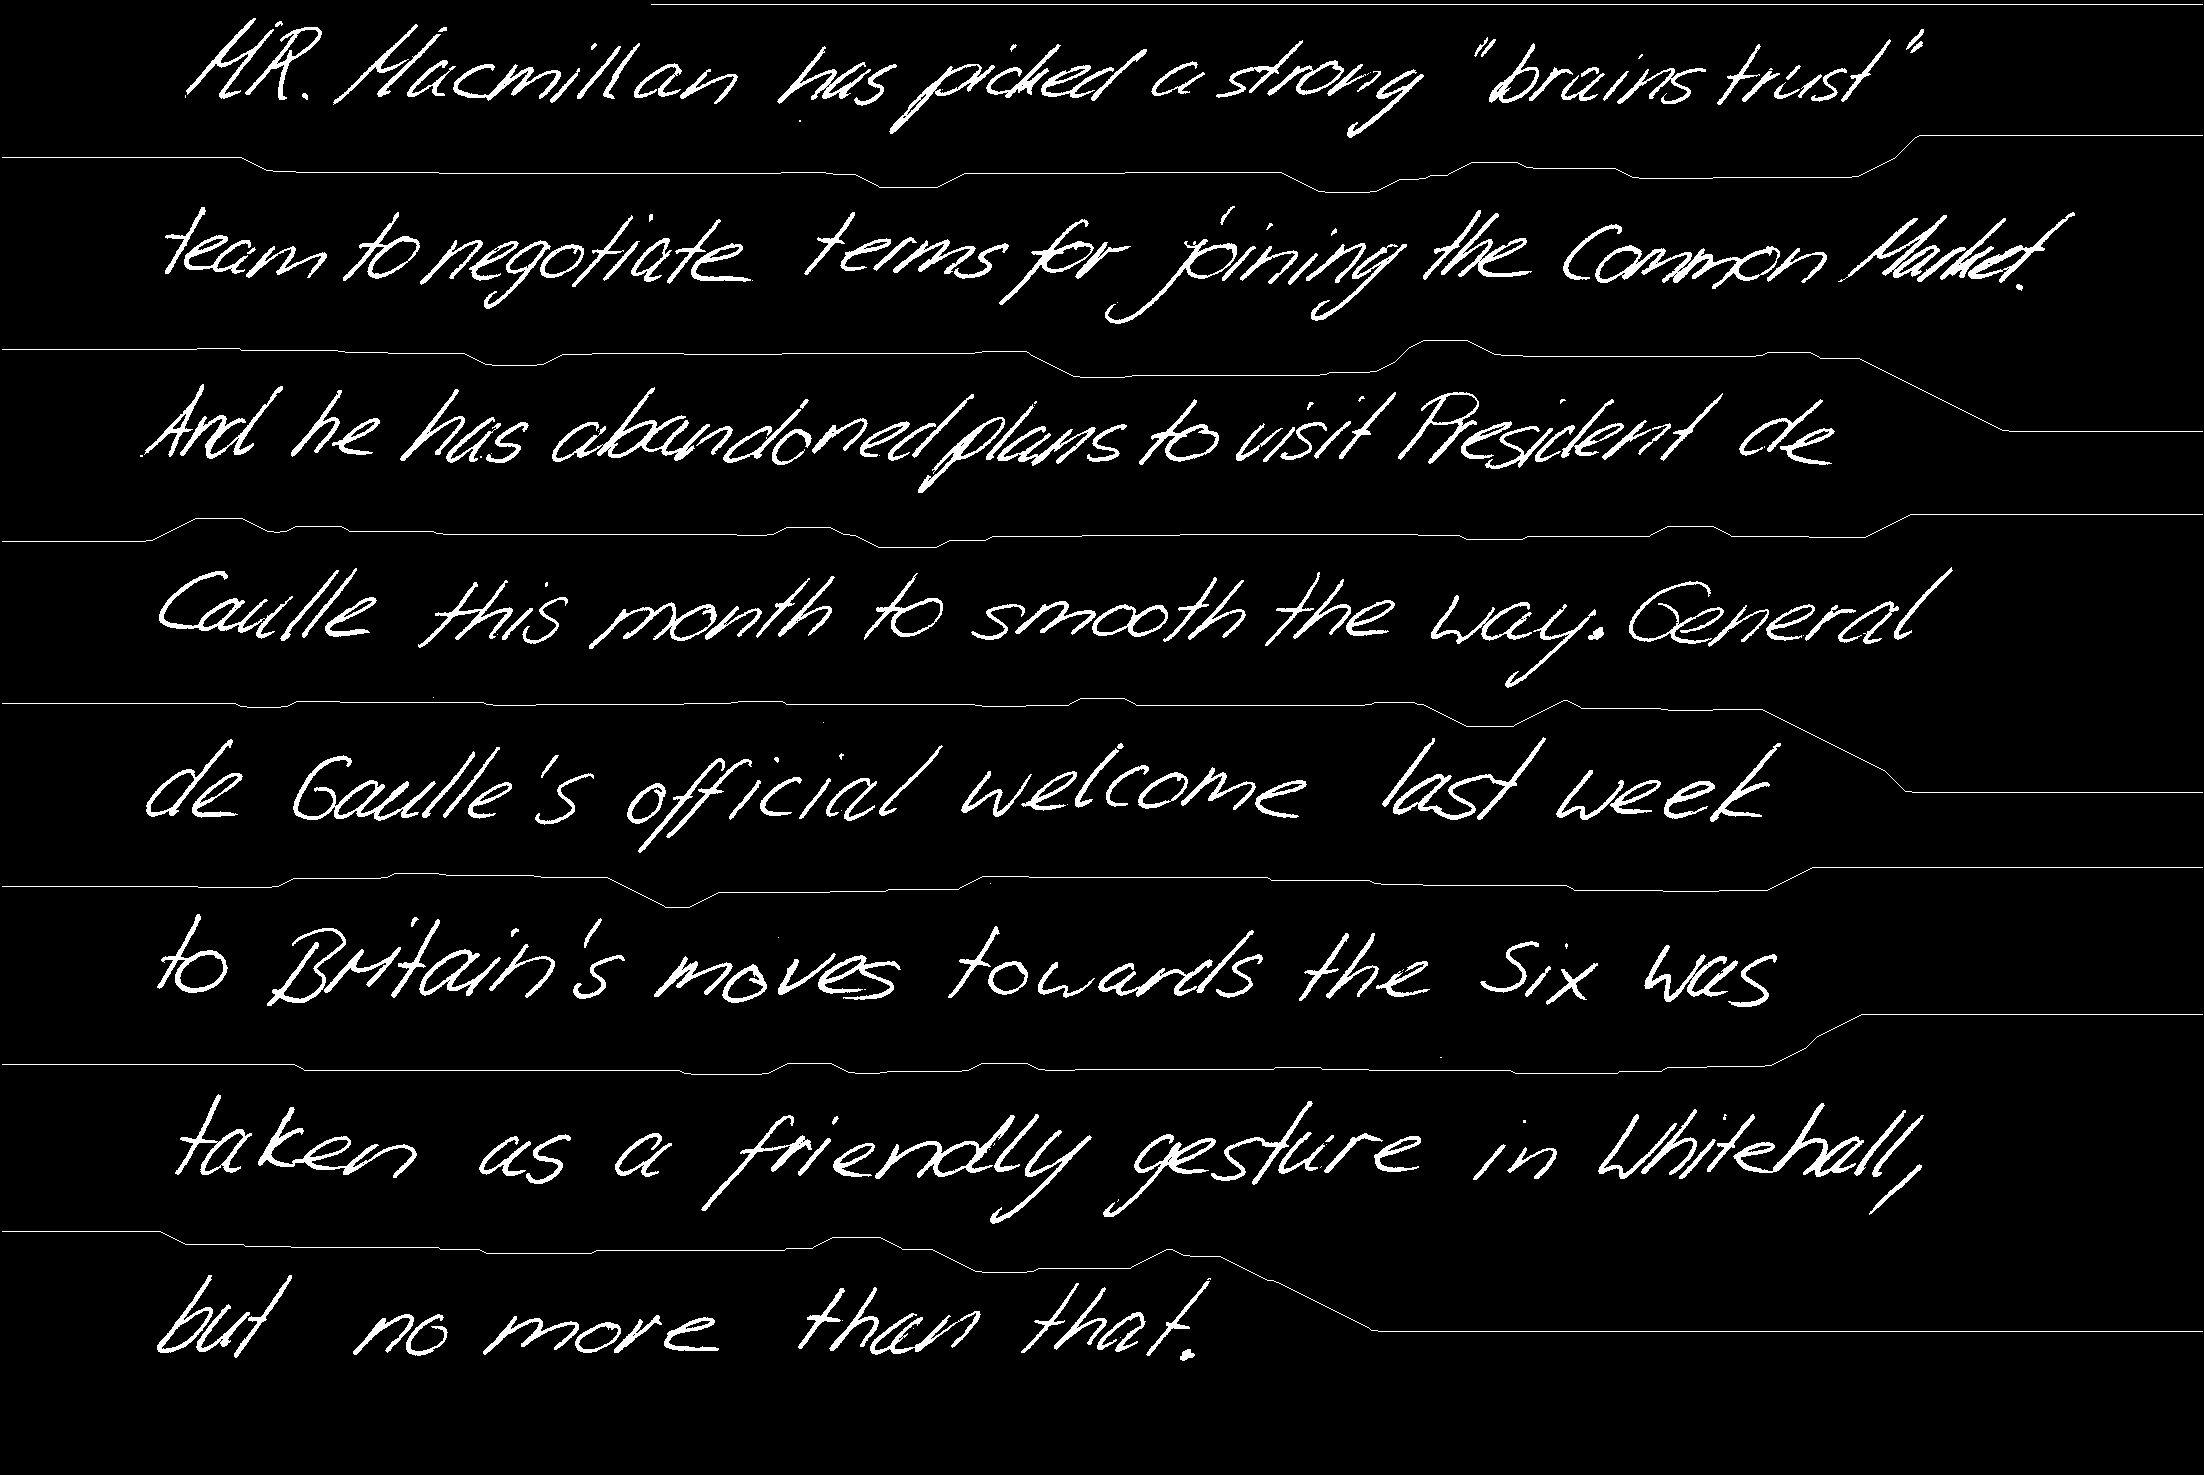 MR. Macmillan has picked a strong "brains trust"
team to negotiate terms for joining the Common Market.
And he has abandoned plans to visit President de
Caulle this month to smooth the way. General
de Gaulle's official welcome last week
to Britain's moves towards the Six was
taken as a friendly gesture in Whitehall,
but no more than that.